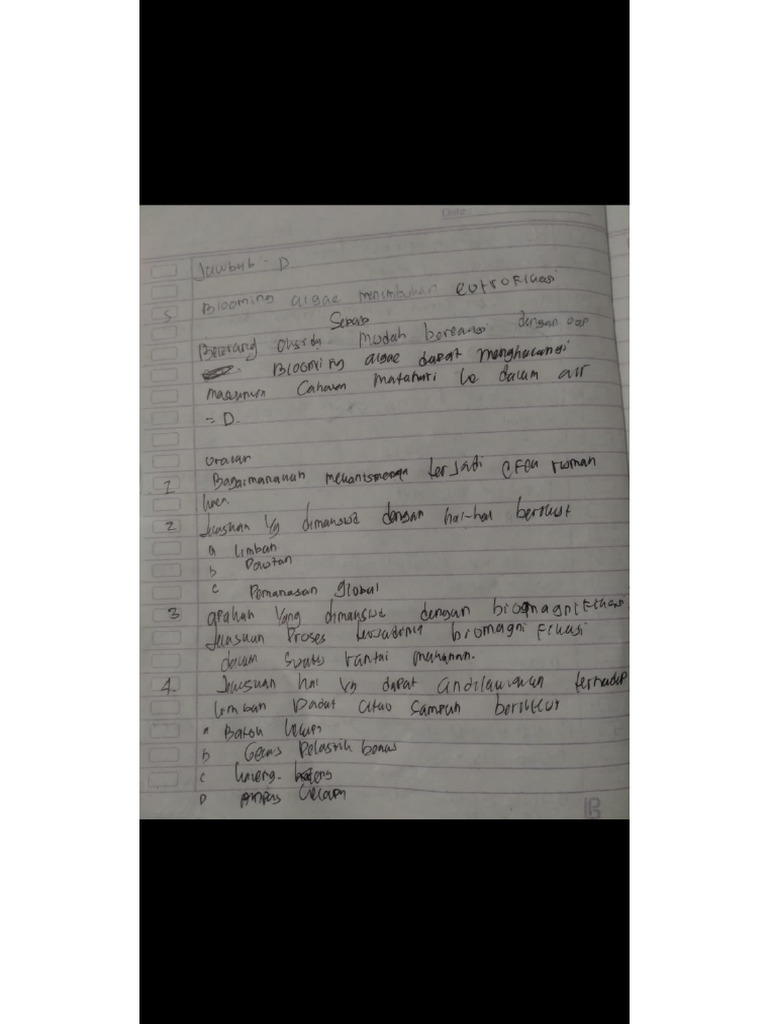 Date
Jawbub = D
5 Blooming algae menimbulkan eutrofikasi
Sebab
mudah bereaksi dengan
Blooming algae dapat menghalangi
Cahaya matahari ke dalam air
= D.
Uraian
1 Bagaimanakah terjadi efek rumah
kaca.
2 Jelaskan yg dimaksud dengan hal-hal berikut
a Limbah
b Polutan
c Pemanasan global
3 apakah yang dimaksud dengan biomagnifikasi
Jelaskan Proses terjadinya biomagnifikasi
dalam suatu rantai makanan.
4. Jelaskan hal yg dapat andilakukan terhadap
limbah Padat atau sampah berikut
a Batok kelapa
b Gelas Pelastik bekas
c kaleng
D Ampas kelapa
B